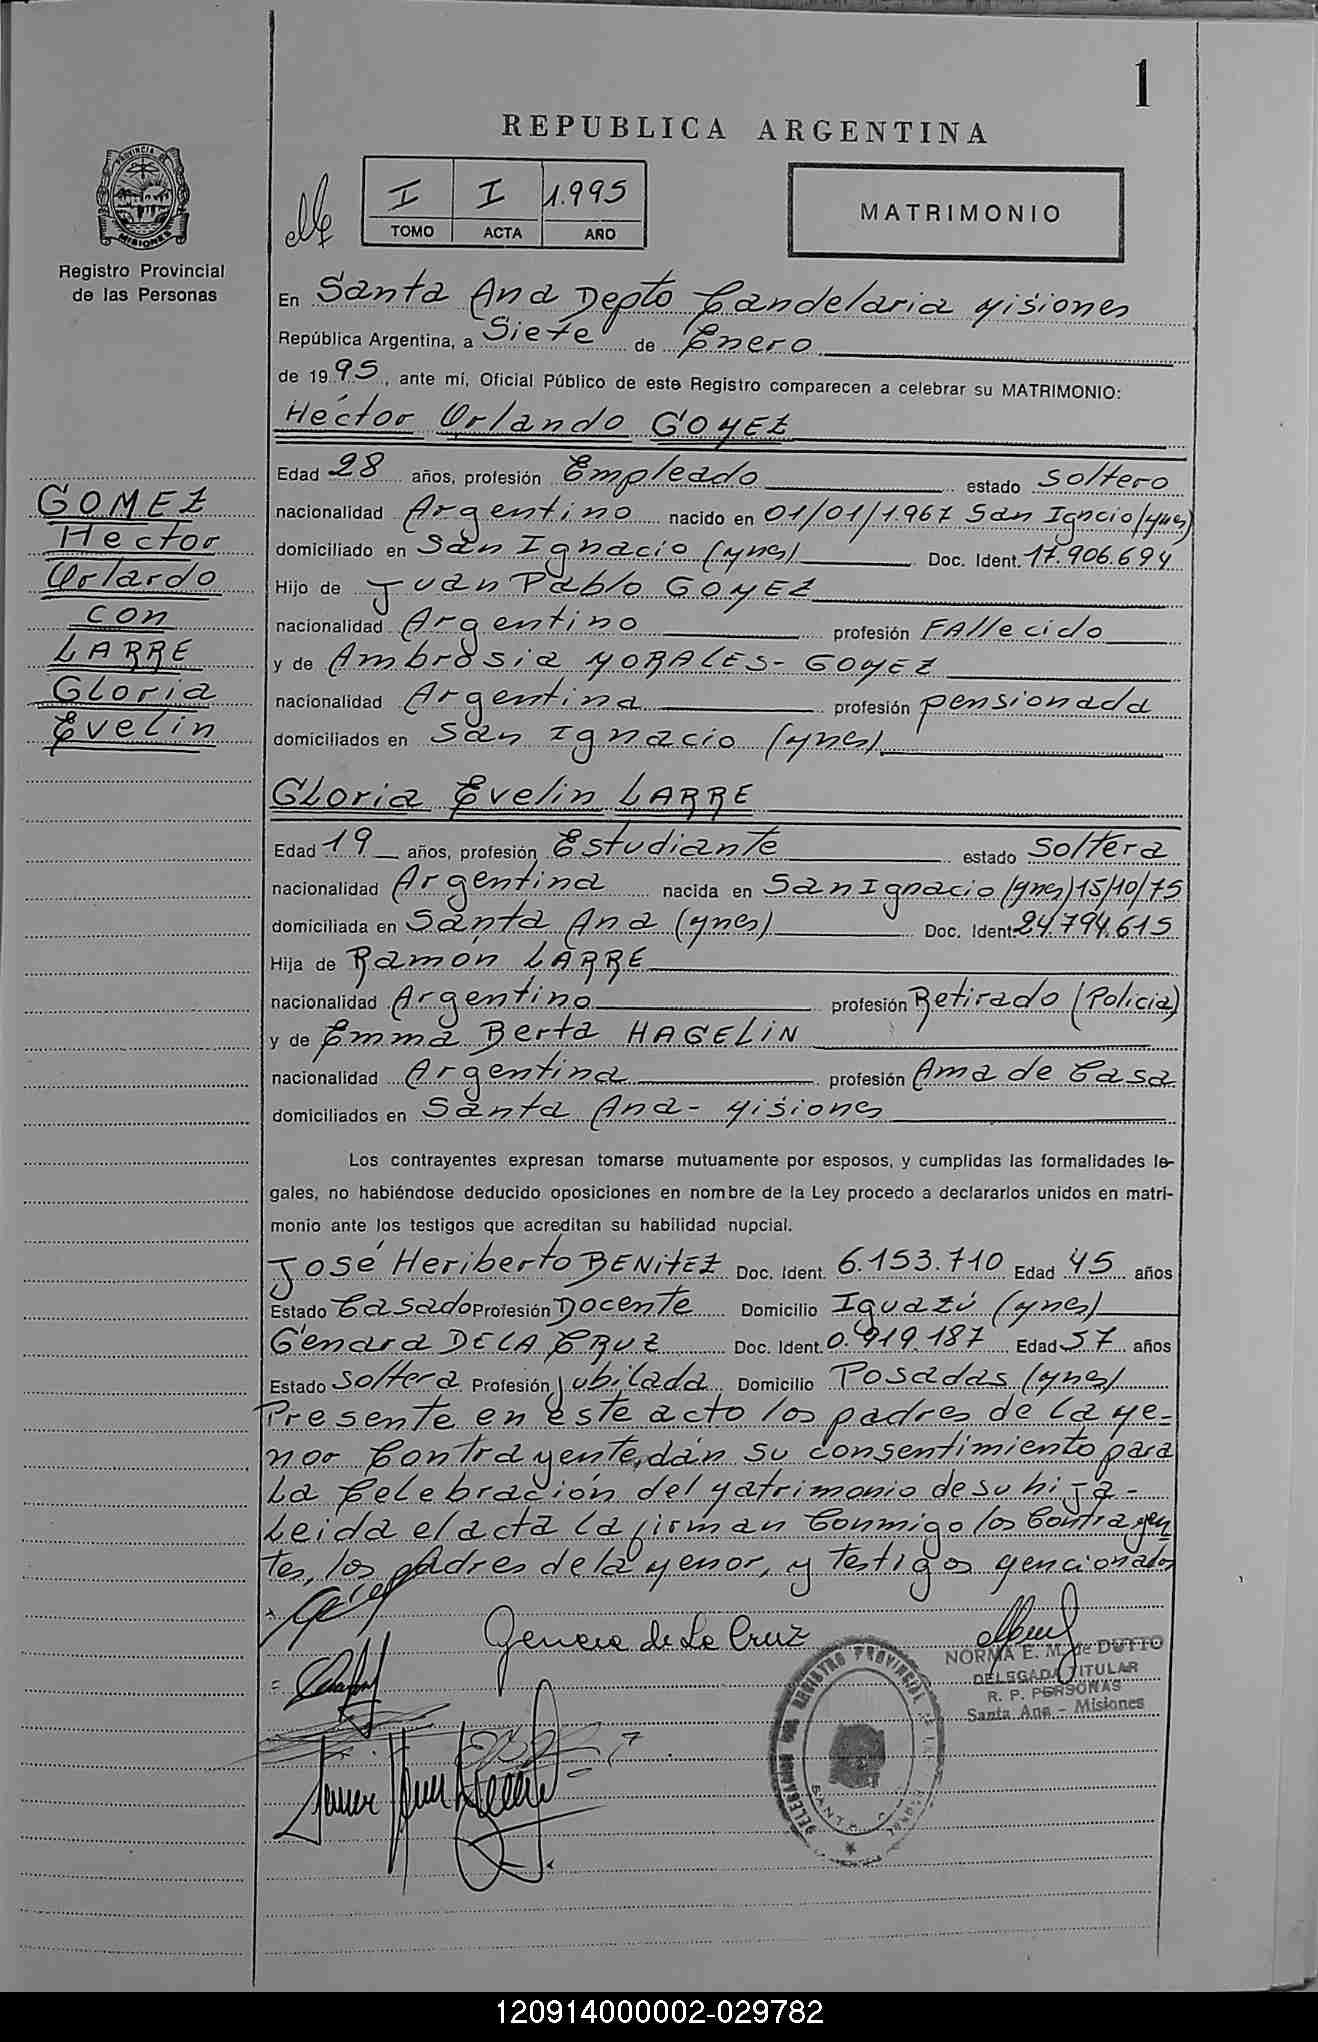 1
REPUBLICA ARGENTINA
PROVINCIA DE
MISIONES
Registro Provincial
de las Personas
I I 1.995
TOMO ACTA AÑO
MATRIMONIO
En Santa Ana Depto Candelaria Misiones
República Argentina, a Siete de Enero
de 1995, ante mí, Oficial Público de este Registro comparecen a celebrar su MATRIMONIO:
Héctor Orlando GOMEZ
Edad 28 años, profesión Empleado estado Soltero
nacionalidad Argentino nacido en 01/01/1.967 San Igncio (Mnes)
domiciliado en San Ignacio (Mnes) Doc. Ident. 17.906.694
Hijo de Juan Pablo GOMEZ
nacionalidad Argentino profesión FAllecido
y de Ambrosia MORALES - GOMEZ
nacionalidad Argentina profesión pensionada
domiciliados en San Ignacio (Mnes)
GOMEZ
Hector
Orlardo
con
LARRE
Gloria
Evelin
Gloria Evelin LARRE
Edad 19 años, profesión Estudiante estado Soltera
nacionalidad Argentina nacida en San Ignacio (Mnes) 15/10/75
domiciliada en Santa Ana (Mnes) Doc. Ident. 24.794.615
Hija de Ramón LARRE
nacionalidad Argentino profesión Retirado (Policia)
y de Emma Berta HAGELIN
nacionalidad Argentina profesión Ama de Casa
domiciliados en Santa Ana - Misiones
Los contrayentes expresan tomarse mutuamente por esposos, y cumplidas las formalidades le-
gales, no habiéndose deducido oposiciones en nombre de la Ley procedo a declararlos unidos en matri-
monio ante los testigos que acreditan su habilidad nupcial.
José Heriberto BENITEZ Doc. Ident. 6.153.710 Edad 45 años
Estado Casado Profesión Docente Domicilio Iguazú (Mnes)
Génara DE LA CRUZ Doc. Ident. 0.919.187 Edad 57 años
Estado Soltera Profesión jubilada Domicilio Posadas (Mnes)
Presente en este acto los padres de la Me-
nor Contrayente, dán su consentimiento para
La Celebración del Matrimonio de su hija -
Leida el acta la firman Conmigo los Contrayen-
tes, los padres de la Menor, y testigos Mencionados
Genera de La Cruz
NORMA E. M. de DUTTO
DELEGADA TITULAR
R. P. PERSONAS
Santa Ana - Misiones
DELEGACION DEL REGISTRO PROVINCIAL DE LAS
SANTA
120914000002-029782